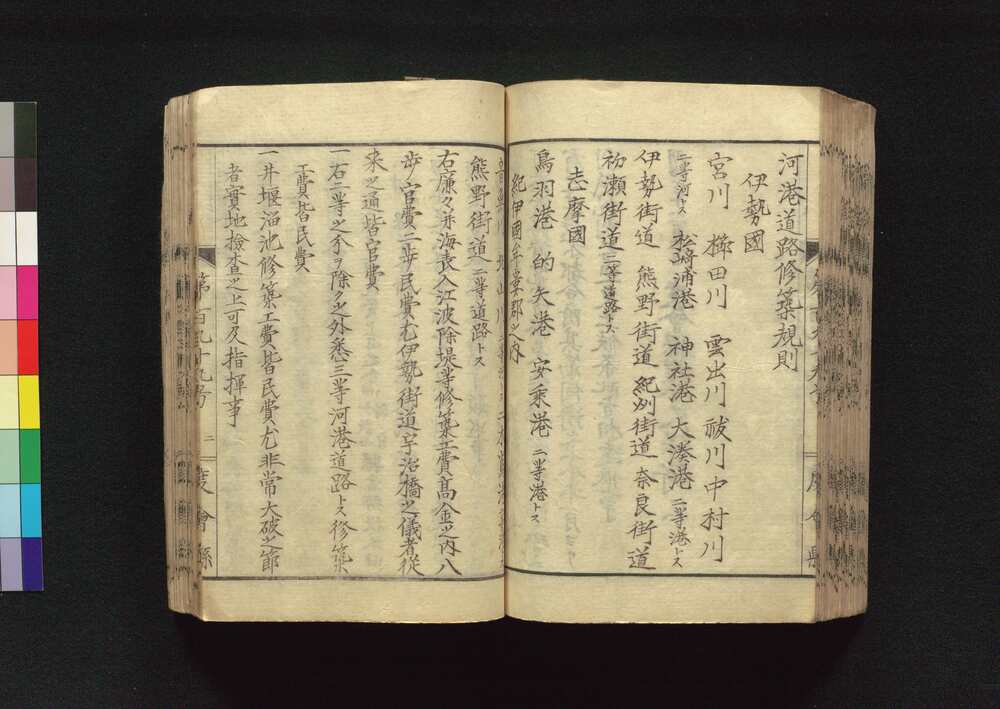 河港道路修築規則
伊勢國
宮川 櫛田川 雲出川 祓川 中村川
二等河トス 松﨑浦港 神社港 大湊港 二等港トス
伊勢街道 熊野街道 紀刕街道 奈良街道
初瀬街道 二等道路トス
志摩國
鳥羽港 的矢港 安乗港 二等港トス
紀伊國牟婁郡之内
熊野街道 二等道路トス
右廉々并海表入江波除堤等修築工費高金之内八
歩官費二歩民費尤伊勢街道宇治橋之儀者從
來之通皆官費
一右二等之分ヲ除ク之外悉三等河港道路トス修築
工費皆民費
一井堰溜池修築工費皆民費尤非常大破之節
者實地檢査之上可及指揮事
第百九十九号 二 度會縣